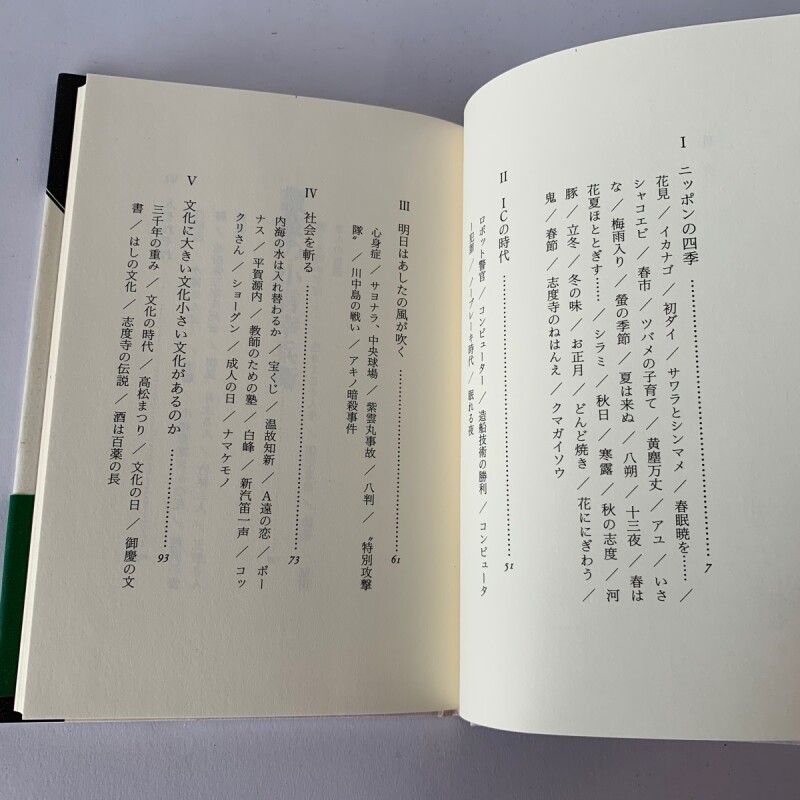 I ニッポンの四季……………………………………7
花見／イカナゴ／初ダイ／サワラとシンマメ／春眠暁を……／
シャコエビ／春市／ツバメの子育て／黄塵万丈／アユ／いさ
な／梅雨入り／螢の季節／夏は来ぬ／八朔／十三夜／春は
花夏ほととぎす……／シラミ／秋日／寒露／秋の志度／河
豚／立冬／冬の味／お正月／どんど焼き／花ににぎわう／
鬼／春節／志度寺のねはんえ／クマガイソウ
II ICの時代……………………………………51
ロボット警官／コンピューター／造船技術の勝利／コンピュータ
ー犯罪／ノーブレーキ時代／眠れる夜
III 明日はあしたの風が吹く……………………………………61
心身症／サヨナラ、中央球場／紫雲丸事故／八判／〝特別攻撃
隊〟／川中島の戦い／アキノ暗殺事件
IV 社会を斬る……………………………………73
内海の水は入れ替わるか／宝くじ／温故知新／A遠の恋／ボー
ナス／平賀源内／教師のための塾／白峰／新汽笛一声／コッ
クリさん／ショーグン／成人の日／ナマケモノ
V 文化に大きい文化小さい文化があるのか……………………93
三千年の重み／文化の時代／高松まつり／文化の日／御慶の文
書／はしの文化／志度寺の伝説／酒は百薬の長